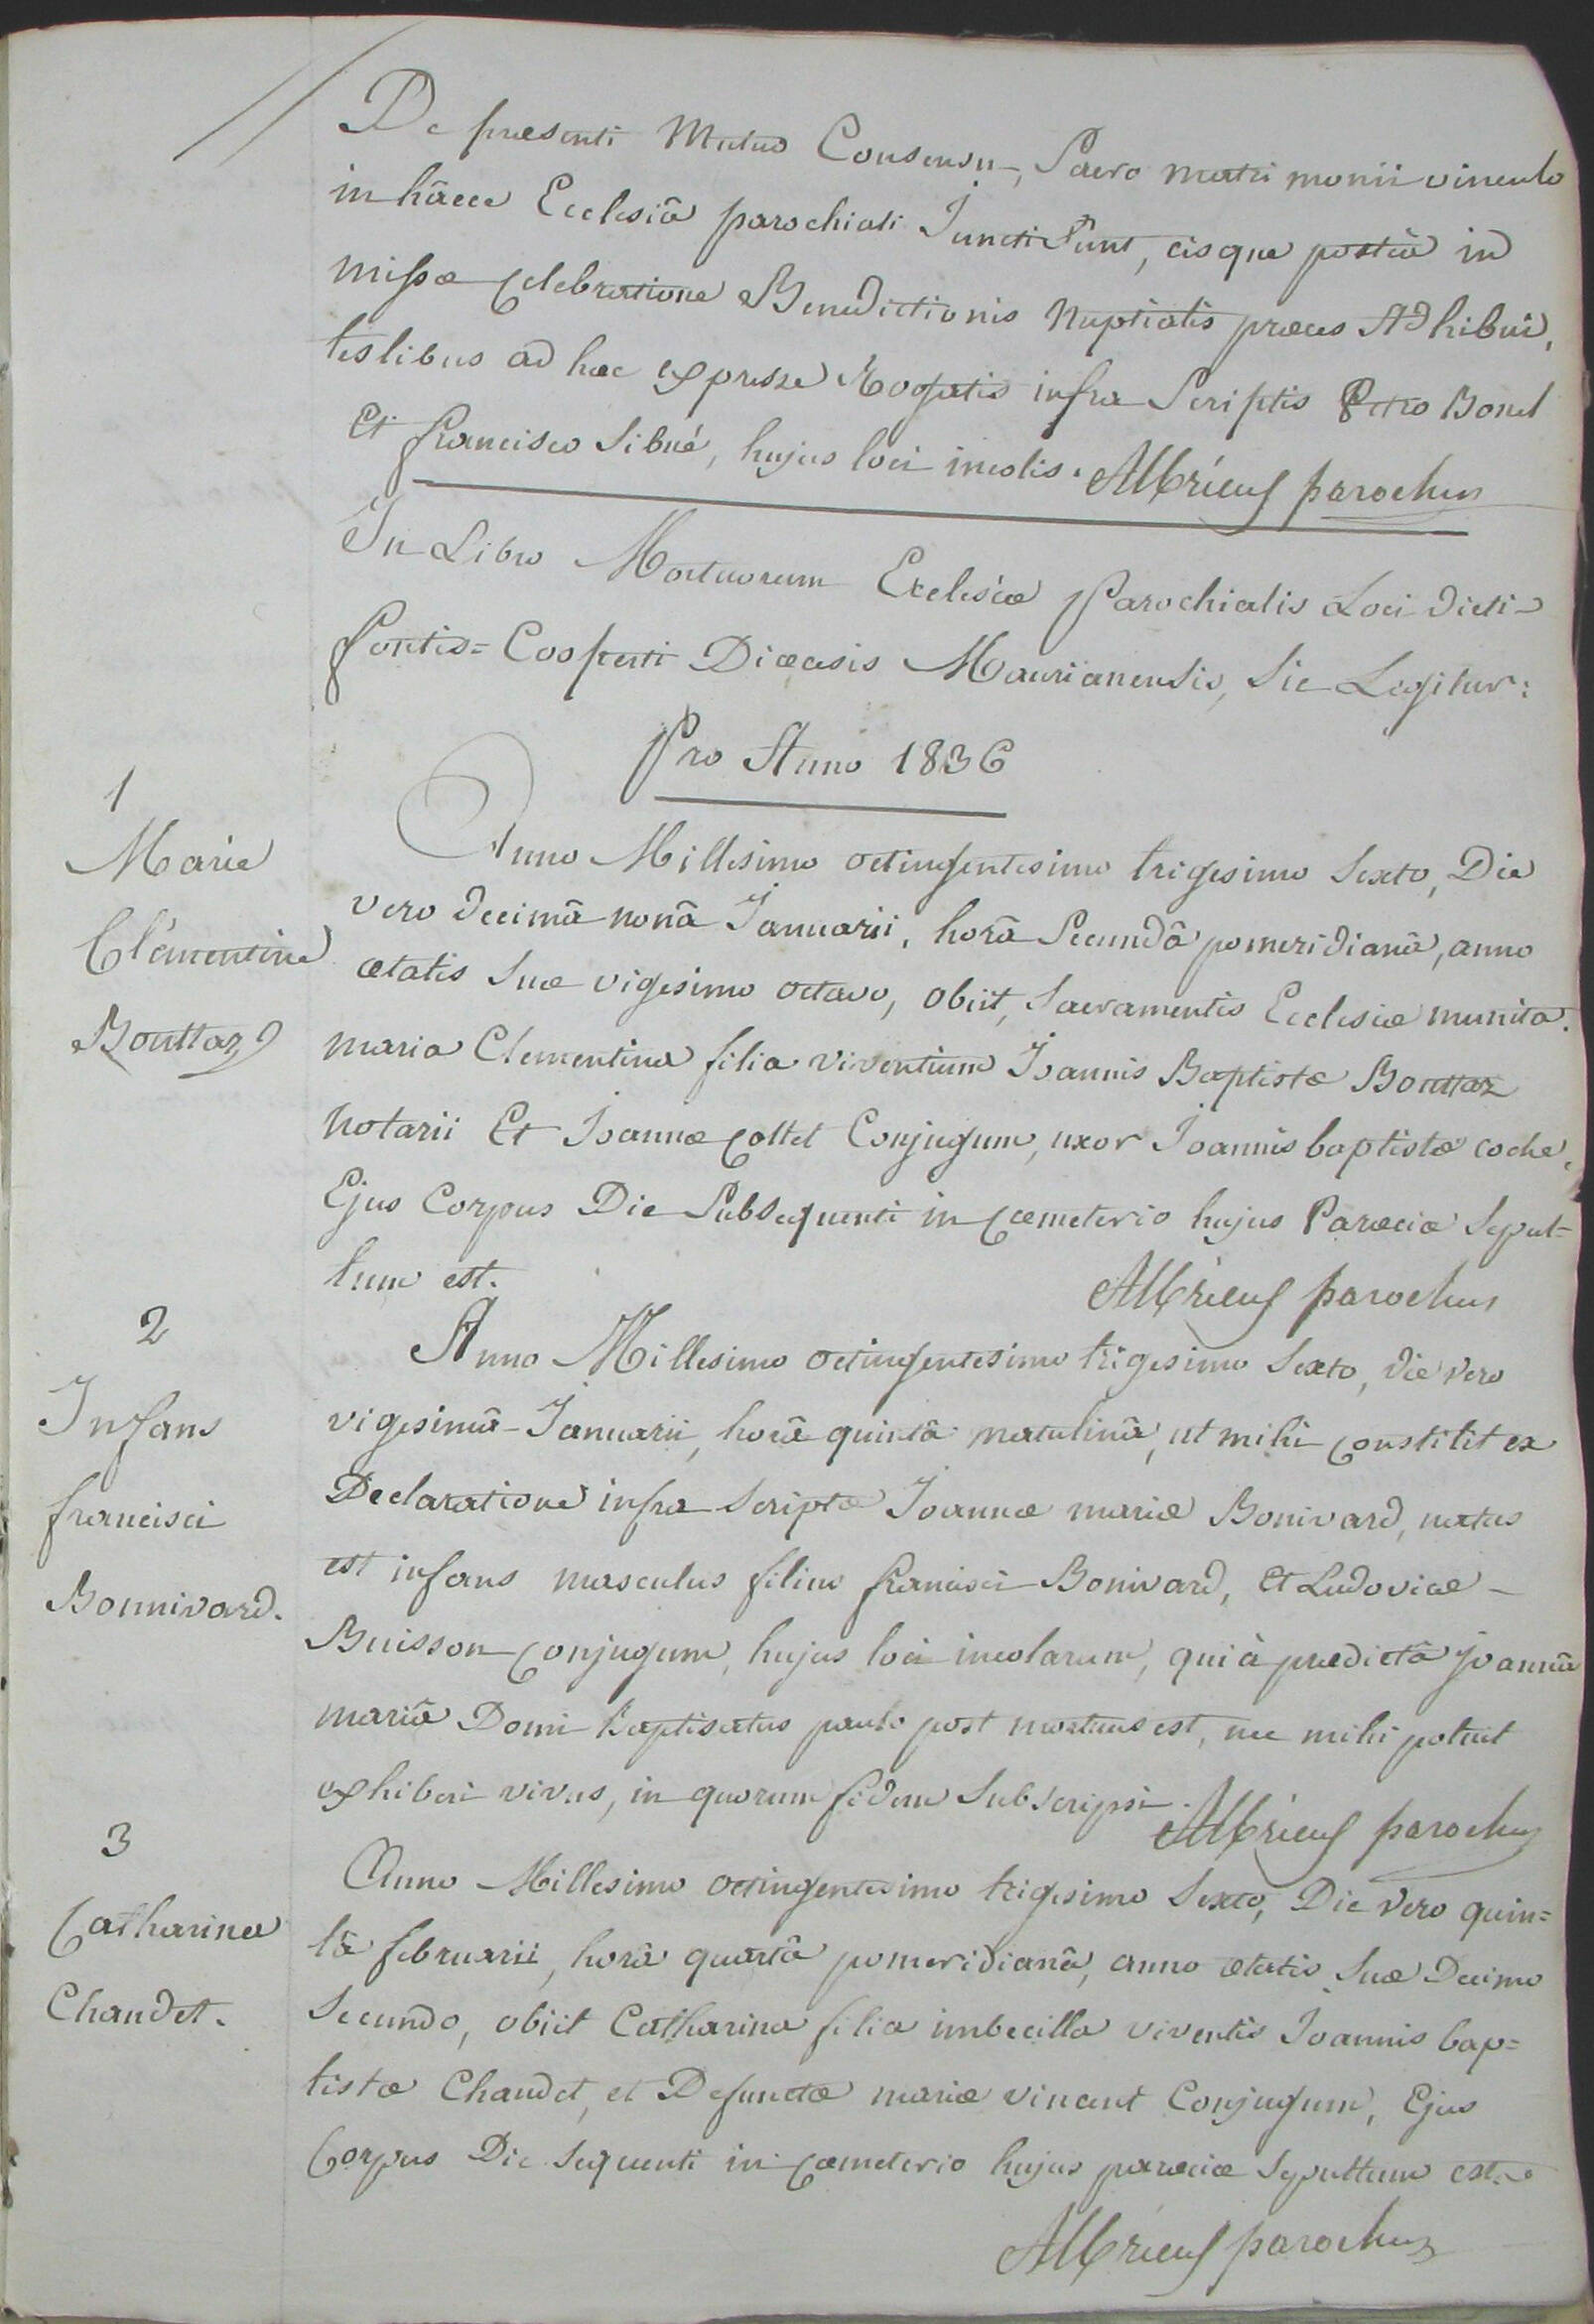 De præsenti Mutuo Consensu, Sacro matrimonii vinculo
in hâcce Ecclesiâ parochiali Juncti Sunt, eisque posteà in
missæ Celebratione Benedictionis Nuptialis præces Adhibui,
testibus ad hæc expresse Rogatis infra Scriptis Petro Bonel
Et francisco Sibué, hujus loci incolis. Albrieux parochus
In Libro Mortuorum Ecclesiæ Parochialis Loci dicti
Pontis=Cooperti Diœcesis Maurianensis, Sic Legitur:
Pro Anno 1836
1
Marie
Clémentine
Bouttaz
Anno Millesimo octingentesimo trigesimo Sexto, Die
vero decimâ nonâ Januarii, horâ Secundâ pomeridianâ, anno
ætatis Suæ vigesimo octavo, obiit, Sacramentis Ecclesiæ munita.
maria Clementina filia viventium Joannis Baptistæ Bouttaz
notarii Et Joannæ Collet Conjugum, uxor Joannis baptistæ coche,
Ejus Corpus Die Subsequenti in Cœmeterio hujus Parœciæ Sepul=
tum est.
Albrieux parochus
2
Infans
francisci
Bonnivard.
Anno Millesimo octingentesimo trigesimo Sexto, die vero
vigesimâ Januarii, horâ quintâ matutinâ, ut mihi constitit ex
Declaratione infra Scriptæ Joannæ mariæ Bonivard, natus
est infans masculus filius francisci Bonivard, Et Ludovicæ
Buisson Conjugum, hujus loci incolarum, qui à prædictâ Joannâ
mariâ Domi baptisatus paulo post mortuus est, nec mihi potuit
exhiberi vivus, in quorum fidem Subscripsi.
Albrieux parochus
3
Catharina
Chaudet.
Anno Millesimo octingentesimo trigesimo Sexto, Die vero quin=
tâ februarii, horâ quartâ pomeridianâ, anno ætatis Suæ Decimo
Secundo, obiit Catharina filia imbecilla viventis Joannis bap=
tistæ Chaudet, et Defunctæ mariæ vincent Conjugum, Ejus
Corpus Die Sequenti in Cœmeterio hujus parœciæ Sepultum est.
Albrieux parochus